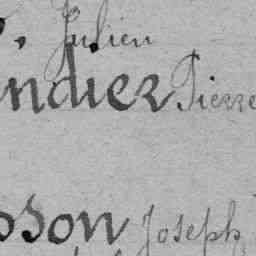 Julien
ndier Pierre
sson Joseph